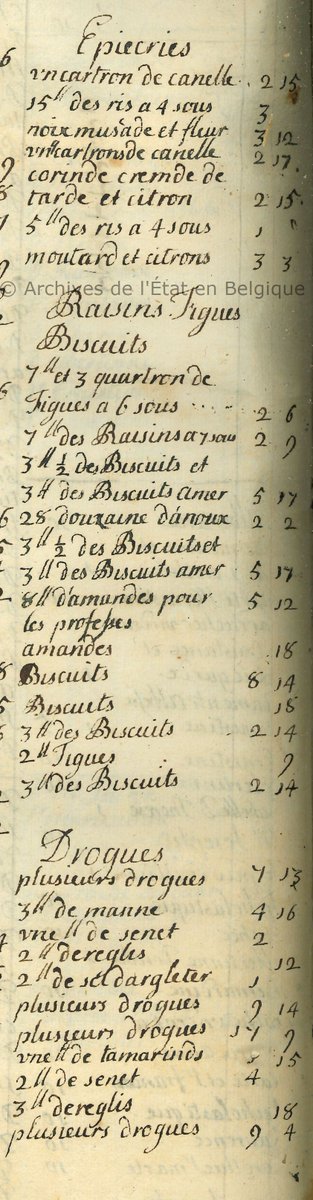 Epiecries
vn cartron de canelle 2 15
15ll des ris a 4 sous 3
noix musade et fleur 3 12
vn cartrons de canelle 2 17
corinde cremde de
tarde et citron 2 15
5ll des ris a 4 sous 1
moutard et citrons 3 3
© Archives de l'État en Belgique
Raisins Figues
Biscuits
7ll et 3 quartron de
Figues a 6 sous 2 6
7ll des Raisins a 7 sou 2 9
3ll ½ des Biscuits et
3ll des Biscuits amer 5 17
28 douzaine dánoux 2 2
3ll ½ des Biscuits et
3ll des Biscuits amer 5 17
8ll d'amandes pour 5 12
les professes
amandes 18
Biscuits 8 14
Biscuits 18
3ll des Biscuits 2 14
2ll Figues 9
3ll des Biscuits 2 14
Drogues
plusieurs drogues 7 13
3ll de manne 4 16
vne ll de senet 2
2ll dereglis 12
2ll de sel dargleter 1
plusieurs drogues 9 14
plusieurs drogues 17 9
vne ll de tamarinds 15
2ll de senet 4
3ll dereglis 18
plusieurs drogues 9 4